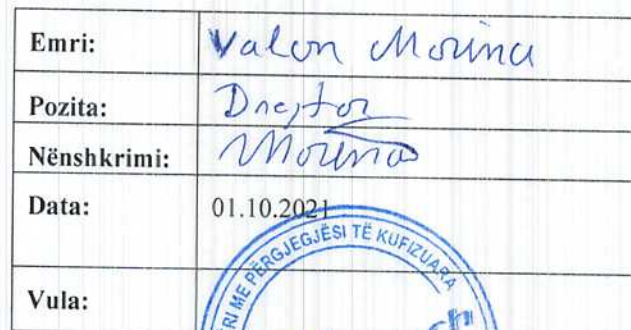 Emri: Valon Morina
Pozita: Drejtor
Nënshkrimi: Morina
Data: 01.10.2021
Vula:
RI ME PËRGJEGJËSI TË KUFIZUARA